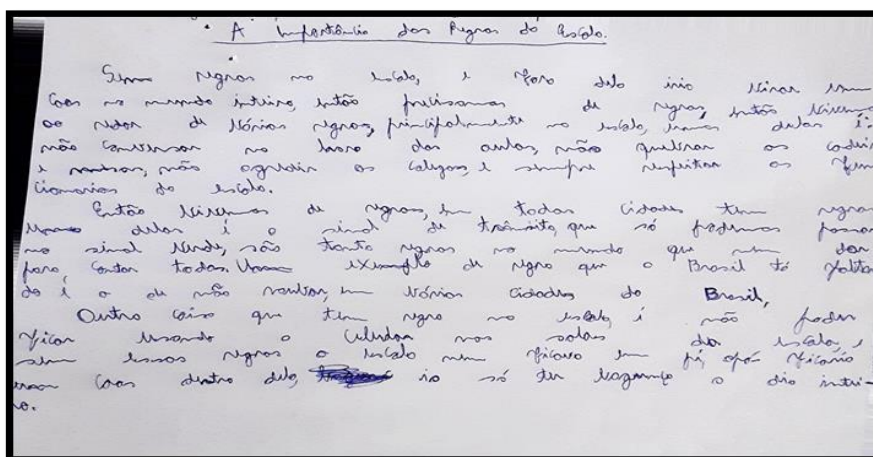 A Importância das Regras da escola.
Sem regras na escola, e fora dela iria virar um
caos no mundo inteiro, então precisamos de regras, então vivemos
ao redor de várias regras, principalmente na escola, umas delas é:
não conversar na hora das aulas, não quebrar os cadei
e não agredir os colegas, e sempre respeitar os fun
cionarios da escola.
Então vivemos de regras, em todas cidades tem regras
delas é o sinal de trânsito, que só podemos passar
no sinal verde, são tanta regras no mundo que nem dar
para contar todas. exemplo de regra que o Brasil tá faltan
do é o de não roubar, em várias cidades do Brasil,
Outra coisa que tem regra na escola, é não poder
ficar usando o celular nas salas da escola, e
sem essas regras a escola nem ficava em pé, ficaria
caos dentro dela, ia só ter bagunça o dia intei-
ro.